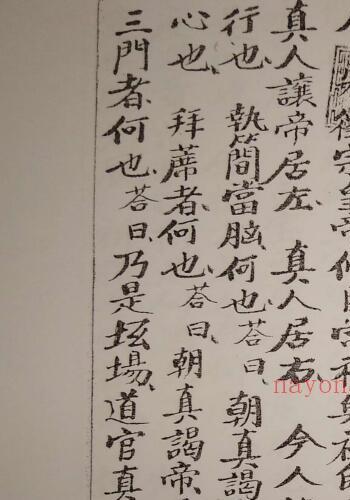 真人讓帝居左、真人居右、今人
行也、執簡當脑、何也、荅曰、朝真謁
心也、拜蓆者、何也、荅曰、朝真謁帝
三門者、何也、荅曰、乃是坛場、道官真
nayon